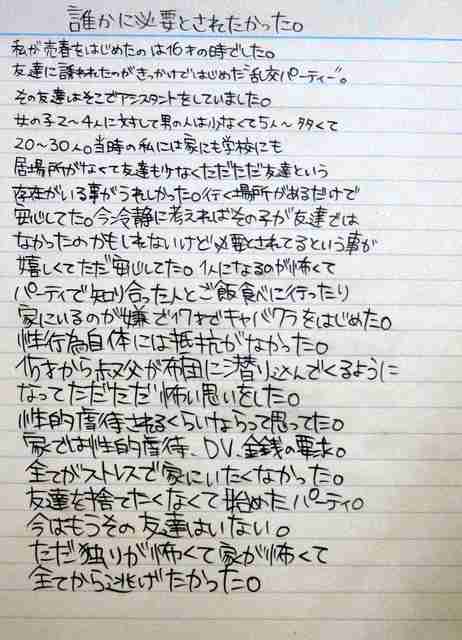 誰かに必要とされたかった。
私が売春をはじめたのは16才の時でした。
友達に誘われたのがきっかけではじめた"乱交パーティー"。
その友達はそこでアシスタントをしていました。
女の子2〜4人に対して男の人は少なくて5人〜多くて
20〜30人。当時の私には家にも学校にも
居場所がなくて友達も少なくただただ友達という
存在がいる事がうれしかった。行く場所があるだけで
安心してた。今冷静に考えればその子が友達では
なかったのかもしれないけど必要とされてるという事が
嬉しくてただ安心してた。1人になるのが怖くて
パーティで知り合った人とご飯食べに行ったり
家にいるのが嫌で17才でキャバクラをはじめた。
性行為自体には抵抗がなかった。
15才から叔父が布団に潜り込んでくるように
なってただただ怖い思いをした。
性的虐待されるくらいならって思ってた。
家では性的虐待、DV、金銭の要求。
全てがストレスで家にいたくなかった。
友達を捨てたくなくて始めたパーティ。
今はもうその友達はいない。
ただ独りが怖くて家が怖くて
全てから逃げたかった。